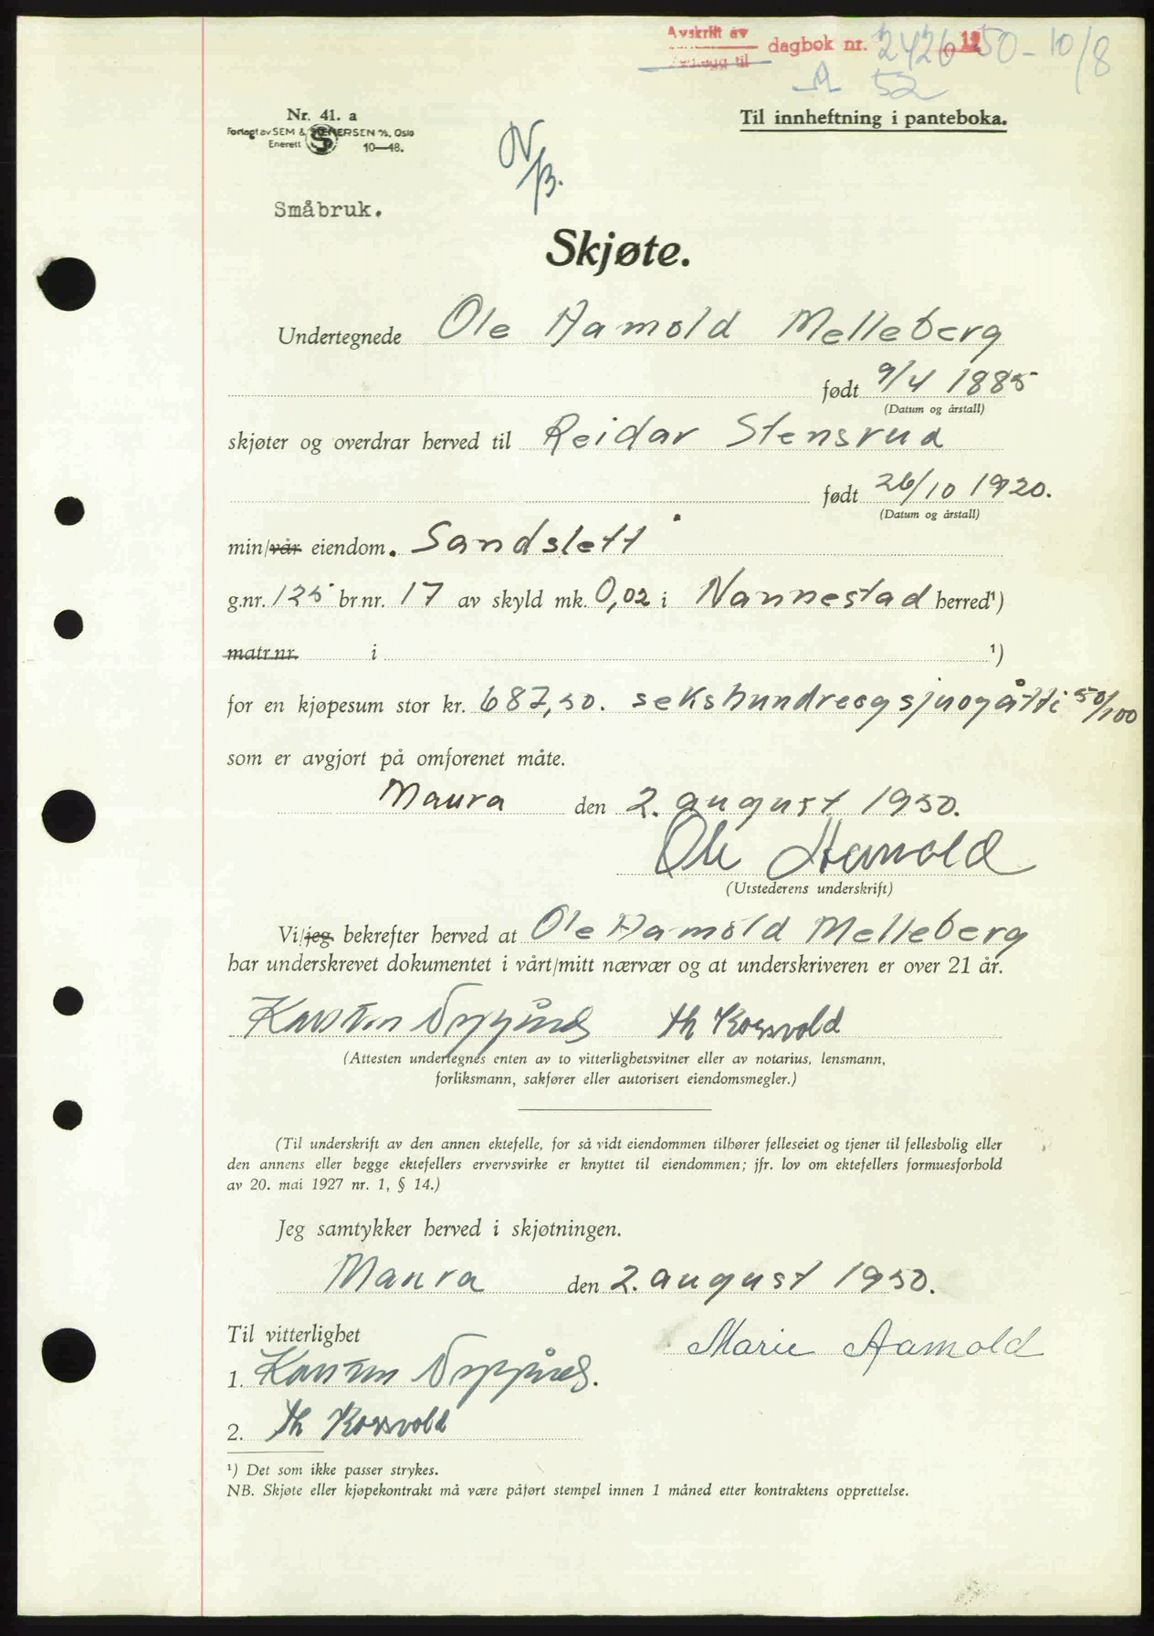 Avskrift av dagbok nr. 2426 1950 - 10/8
A 52
Nr. 41. a
Forlagt av SEM & STENERSEN A/S, Oslo
Enerett 10—48.
Til innheftning i panteboka.
N/B.
Småbruk.
Skjøte.
Undertegnede Ole Aamold Melleberg
født 9/4 1885
(Datum og årstall)
skjøter og overdrar herved til Reidar Stensrud
født 26/10 1920.
(Datum og årstall)
min/vår eiendom. Sandslett
g.nr. 125 br.nr. 17 av skyld mk. 0,02 i Nannestad herred¹)
matr.nr. i ¹)
for en kjøpesum stor kr. 687,50. sekshundreogsjuogåtti 50/100
som er avgjort på omforenet måte.
Maura den 2. august 1950.
Ole Aamold
(Utstederens underskrift)
Vi/jeg bekrefter herved at Ole Aamold Melleberg
har underskrevet dokumentet i vårt/mitt nærvær og at underskriveren er over 21 år.
Karsten Th Korsvold
(Attesten undertegnes enten av to vitterlighetsvitner eller av notarius, lensmann,
forliksmann, sakfører eller autorisert eiendomsmegler.)
(Til underskrift av den annen ektefelle, for så vidt eiendommen tilhører felleseiet og tjener til fellesbolig eller
den annens eller begge ektefellers ervervsvirke er knyttet til eiendommen; jfr. lov om ektefellers formuesforhold
av 20. mai 1927 nr. 1, § 14.)
Jeg samtykker herved i skjøtningen.
Maura den 2. august 1950.
Til vitterlighet
Marie Aamold
1. Karsten
2. Th Korsvold
¹) Det som ikke passer strykes.
NB. Skjøte eller kjøpekontrakt må være påført stempel innen 1 måned etter kontraktens opprettelse.